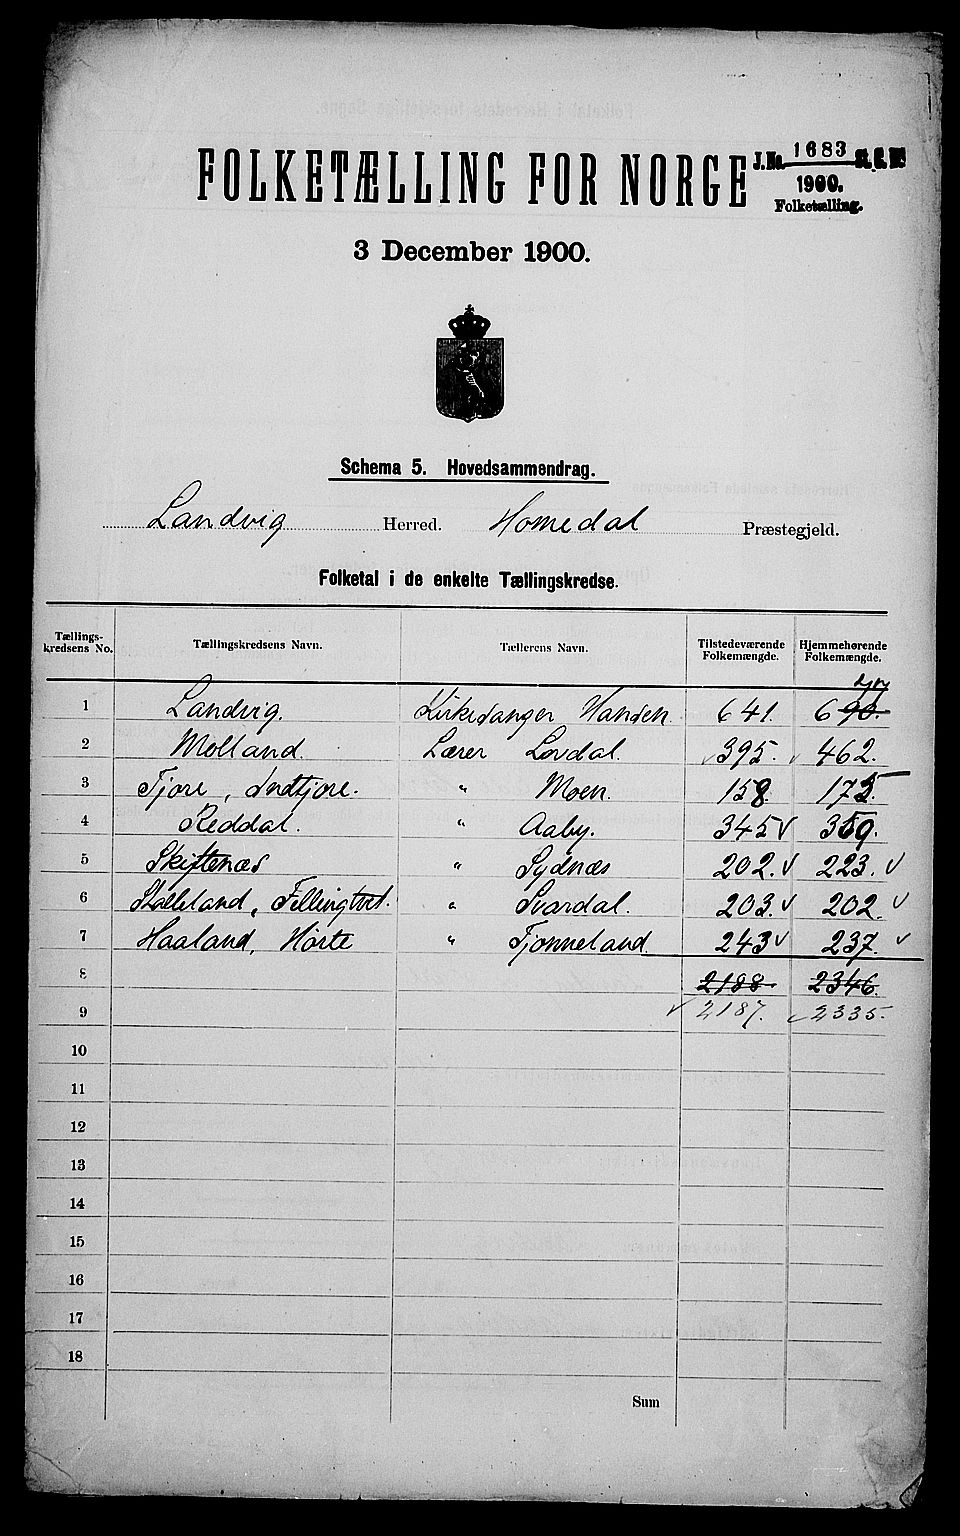 FOLKETÆLLING FOR NORGE
J.No. 1683 St. C. B.
1900.
Folketælling.
3 December 1900.
Schema 5. Hovedsammendrag.
Landvig Herred. Homedal Præstegjeld.
Folketal i de enkelte Tællingskredse.
Tællings-
kredsens No. Tællingskredsens Navn. Tællerens Navn. Tilstedeværende Folkemængde. Hjemmehørende Folkemængde.
1 Landvig. Kirkesanger Hansen 641. 690.
2 Molland. Lærer Lovdal. 395. 462.
3 Fjære, Indtjore. " Moen. 158. 175.
4 Reddal. " Aaby. 345 359.
5 Skiftenæs " Sydnæs 202. 223.
6 Støleland, Fellingtvet. " Svardal. 203. 202.
7 Haaland, Hørte " Tjønneland. 243 237.
8 2188 2346.
9 2187. 2335.
10
11
12
13
14
15
16
17
18
Sum